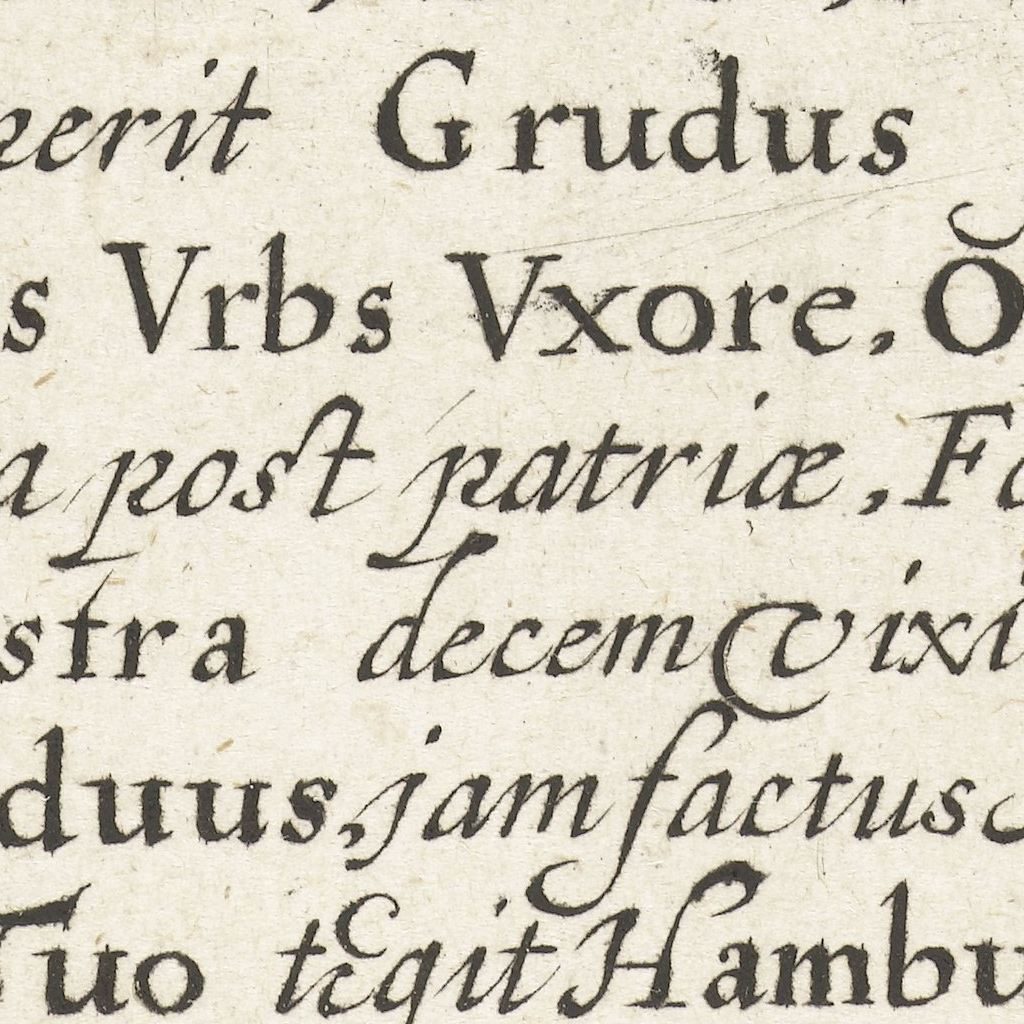 nerit Grudus
s Vrbs Vxore, Ŏ
a post patriæ, Fa
stra decem vixi
duus, jam factus
Tuo tegit Hambu